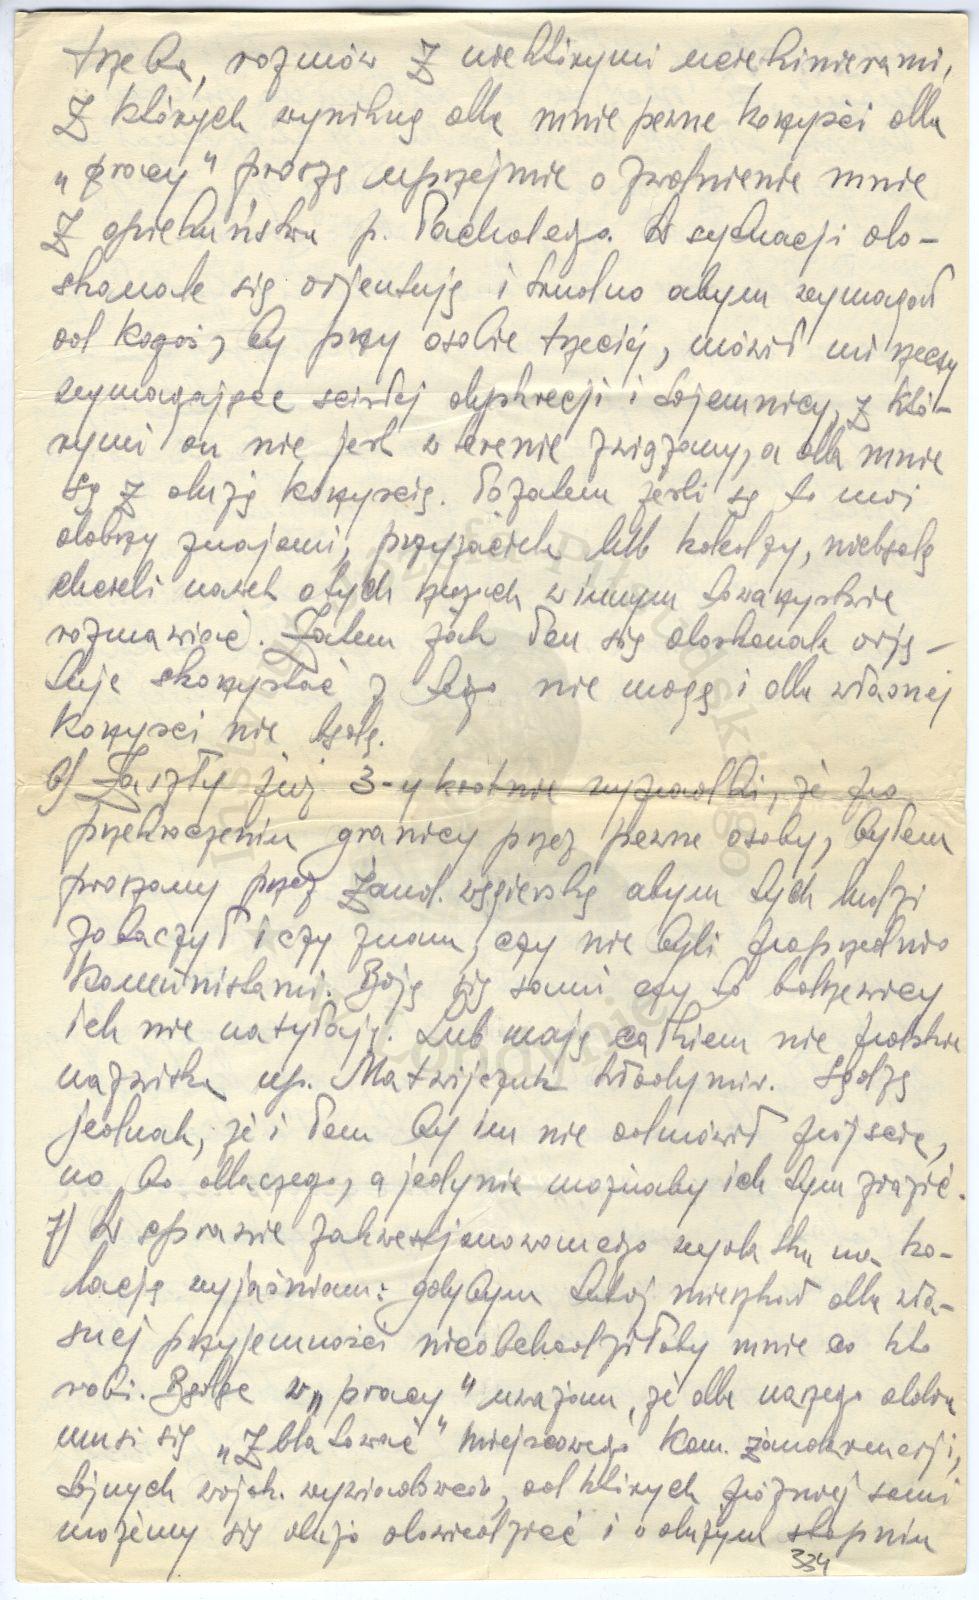 trzebą, rozmów z niektórymi uciekinierami,
z których wynikną dla mnie pewne korzyści dla
„pracy" proszę uprzejmie o zwolnienie mnie
z opiekuństwa p. Pacholego. W sytuacji do-
skonale się orjentuję i trudno abym wymagał
od kogoś, by przy osobie trzeciej, mówił mi rzeczy
wymagające ścisłej dyskrecji i tajemnicy, z któ-
rymi on nie jest w terenie związany, a dla mnie
są z dużą korzyścią. Pozatem jeśli są to moi
dobrzy znajomi, przyjaciele lub koledzy, niebędą
chcieli nawet o tych rzeczach w innym towarzystwie
rozmawiać. Zatem jak Pan się doskonale orję-
tuje skorzystać z tego nie mogę i dla własnej
korzyści nie będę.
6) Zaszły już 3-y krotnie wypadki, że po
przekroczeniu granicy przez pewne osoby, byłem
proszony przez Żand. węgierską abym tych ludzi
zobaczył i czy znam, czy nie byli poprzednio
komunistami. Boją się sami czy to bolszewicy
ich nie nasyłają. Lub mają całkiem nie polskie
nazwiska np. Matwijczuk Włodymir. Sądzę
jednak, że i Pan by im nie odmówił pójście,
no bo dlaczego, a jedynie możnaby ich tym zrazić.
7) W sprawie zakwestjonowanego wydatku na ko-
lację wyjaśniam: gdybym tutaj mieszkał dla wła-
snej przyjemności nieobchodziłoby mnie co kto
robi. Będąc w „pracy" uważam, że dla naszego dobra
musi się „zblatować" miejscowego kom. żandarmerji,
tajnych wojsk. wywiadowców, od których później sami
możemy się dużo dowiedzieć i o dużym stopniu
334
Instytut Józefa Piłsudskiego
w Londynie